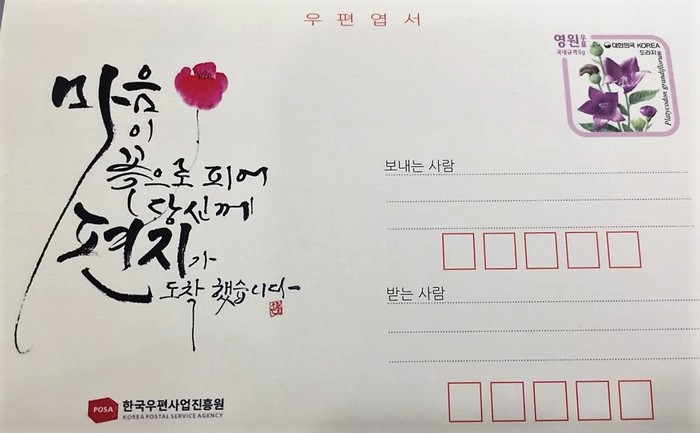 우편엽서
마음
이
꽃으로 피어
당신께
편지가
도착 했습니다
영원우표
국내규격5g
대한민국 KOREA
도라지꽃
Platycodon grandiflorum
보내는 사람
받는 사람
POSA 한국우편사업진흥원
KOREA POSTAL SERVICE AGENCY